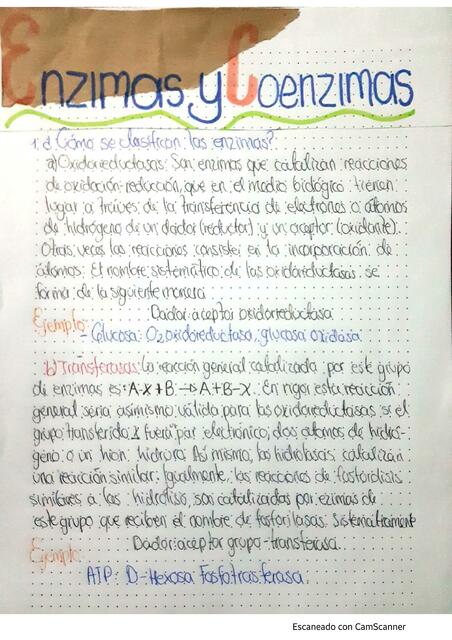 Enzimas y Coenzimas
1. ¿Cómo se clasifican las enzimas?
a) Oxidoreductasas: Son enzimas que catalizan reacciones
de oxidación-reducción, que en el medio biológico tienen
lugar a través de la transferencia de electrones o átomos
de hidrógeno de un dador (reductor) y un aceptor (oxidante).
Otras veces las reacciones consisten en la incorporación de
átomos. El nombre sistemático de las oxidorreductasas se
forma de la siguiente manera
Dador: aceptor oxidorreductasa
Ejemplo:
- Glucosa: O2 oxidoreductasa, glucosa oxidasa
b) Transferasas: La reacción general catalizada por este grupo
de enzimas es: A-X + B → A + B-X. En rigor esta reacción
general seria asimismo válida para las oxidoreductasas si el
grupo transferido X fuera par electrónico, dos átomos de hidró-
geno o un hion hidruro. Así mismo, las hidrolasas catalizan
una reacción similar. Igualmente, las reacciones de fosforólisis
similares a las hidrólisis, son catalizadas por ezimas de
este grupo que reciben el nombre de fosforilasas. Sistematicamente
Dador: aceptor grupo-transferasa.
Ejemplo
ATP: D-Hexosa Fosfotrasferasa.
Escaneado con CamScanner